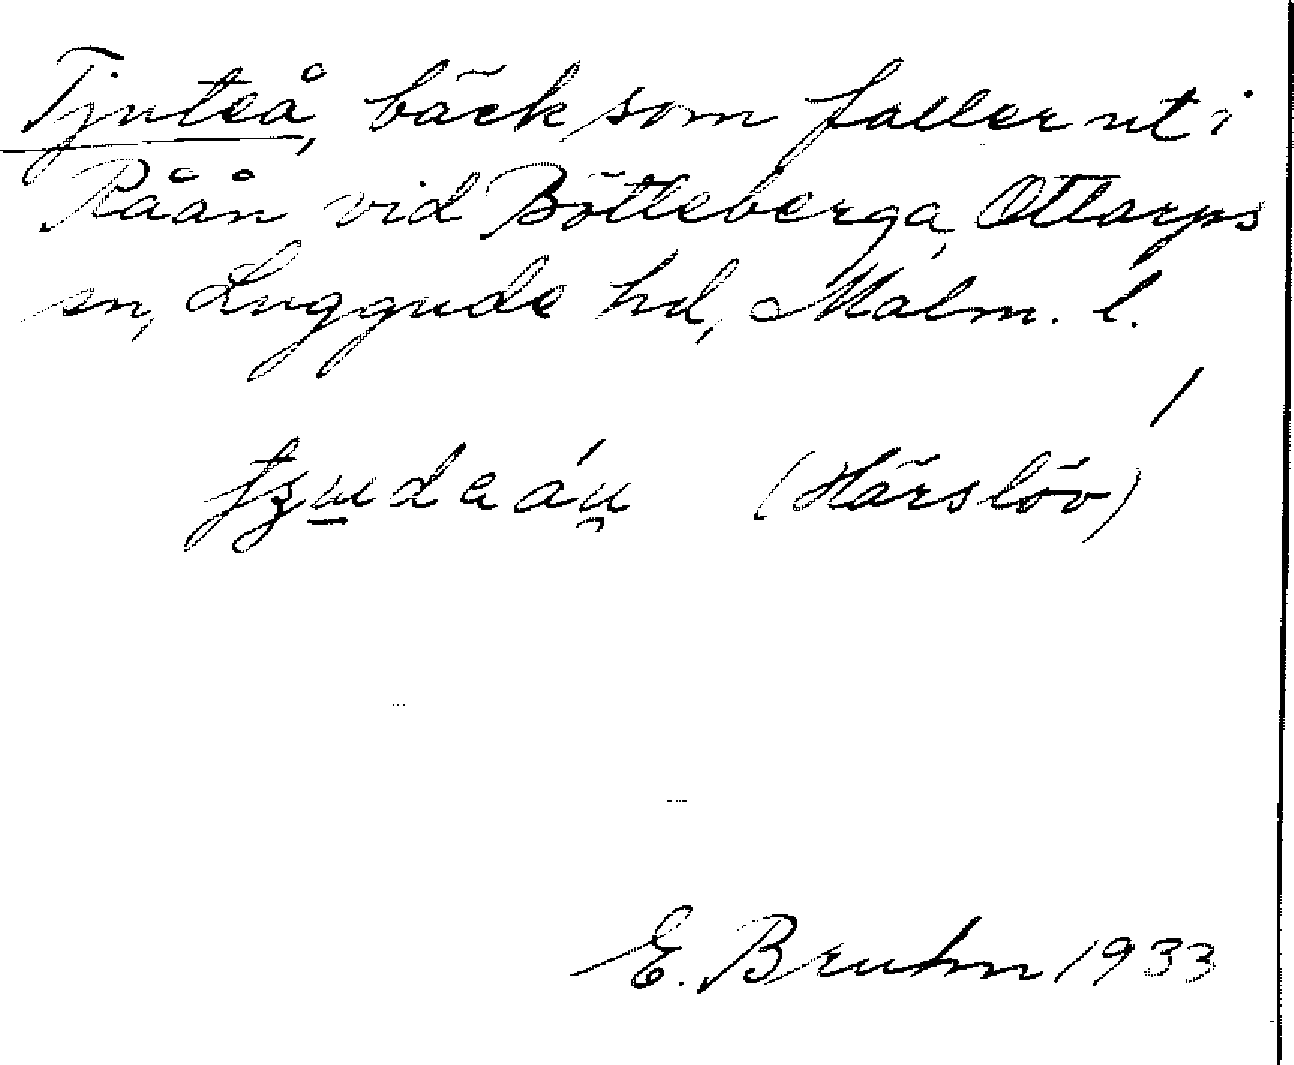 Tjuteå, bäck som faller ut i
Råån vid Bötteberga, Ottarps
sn, Luggude hd, Malm. l.
(Härslöv)
E. Bruhn 1933